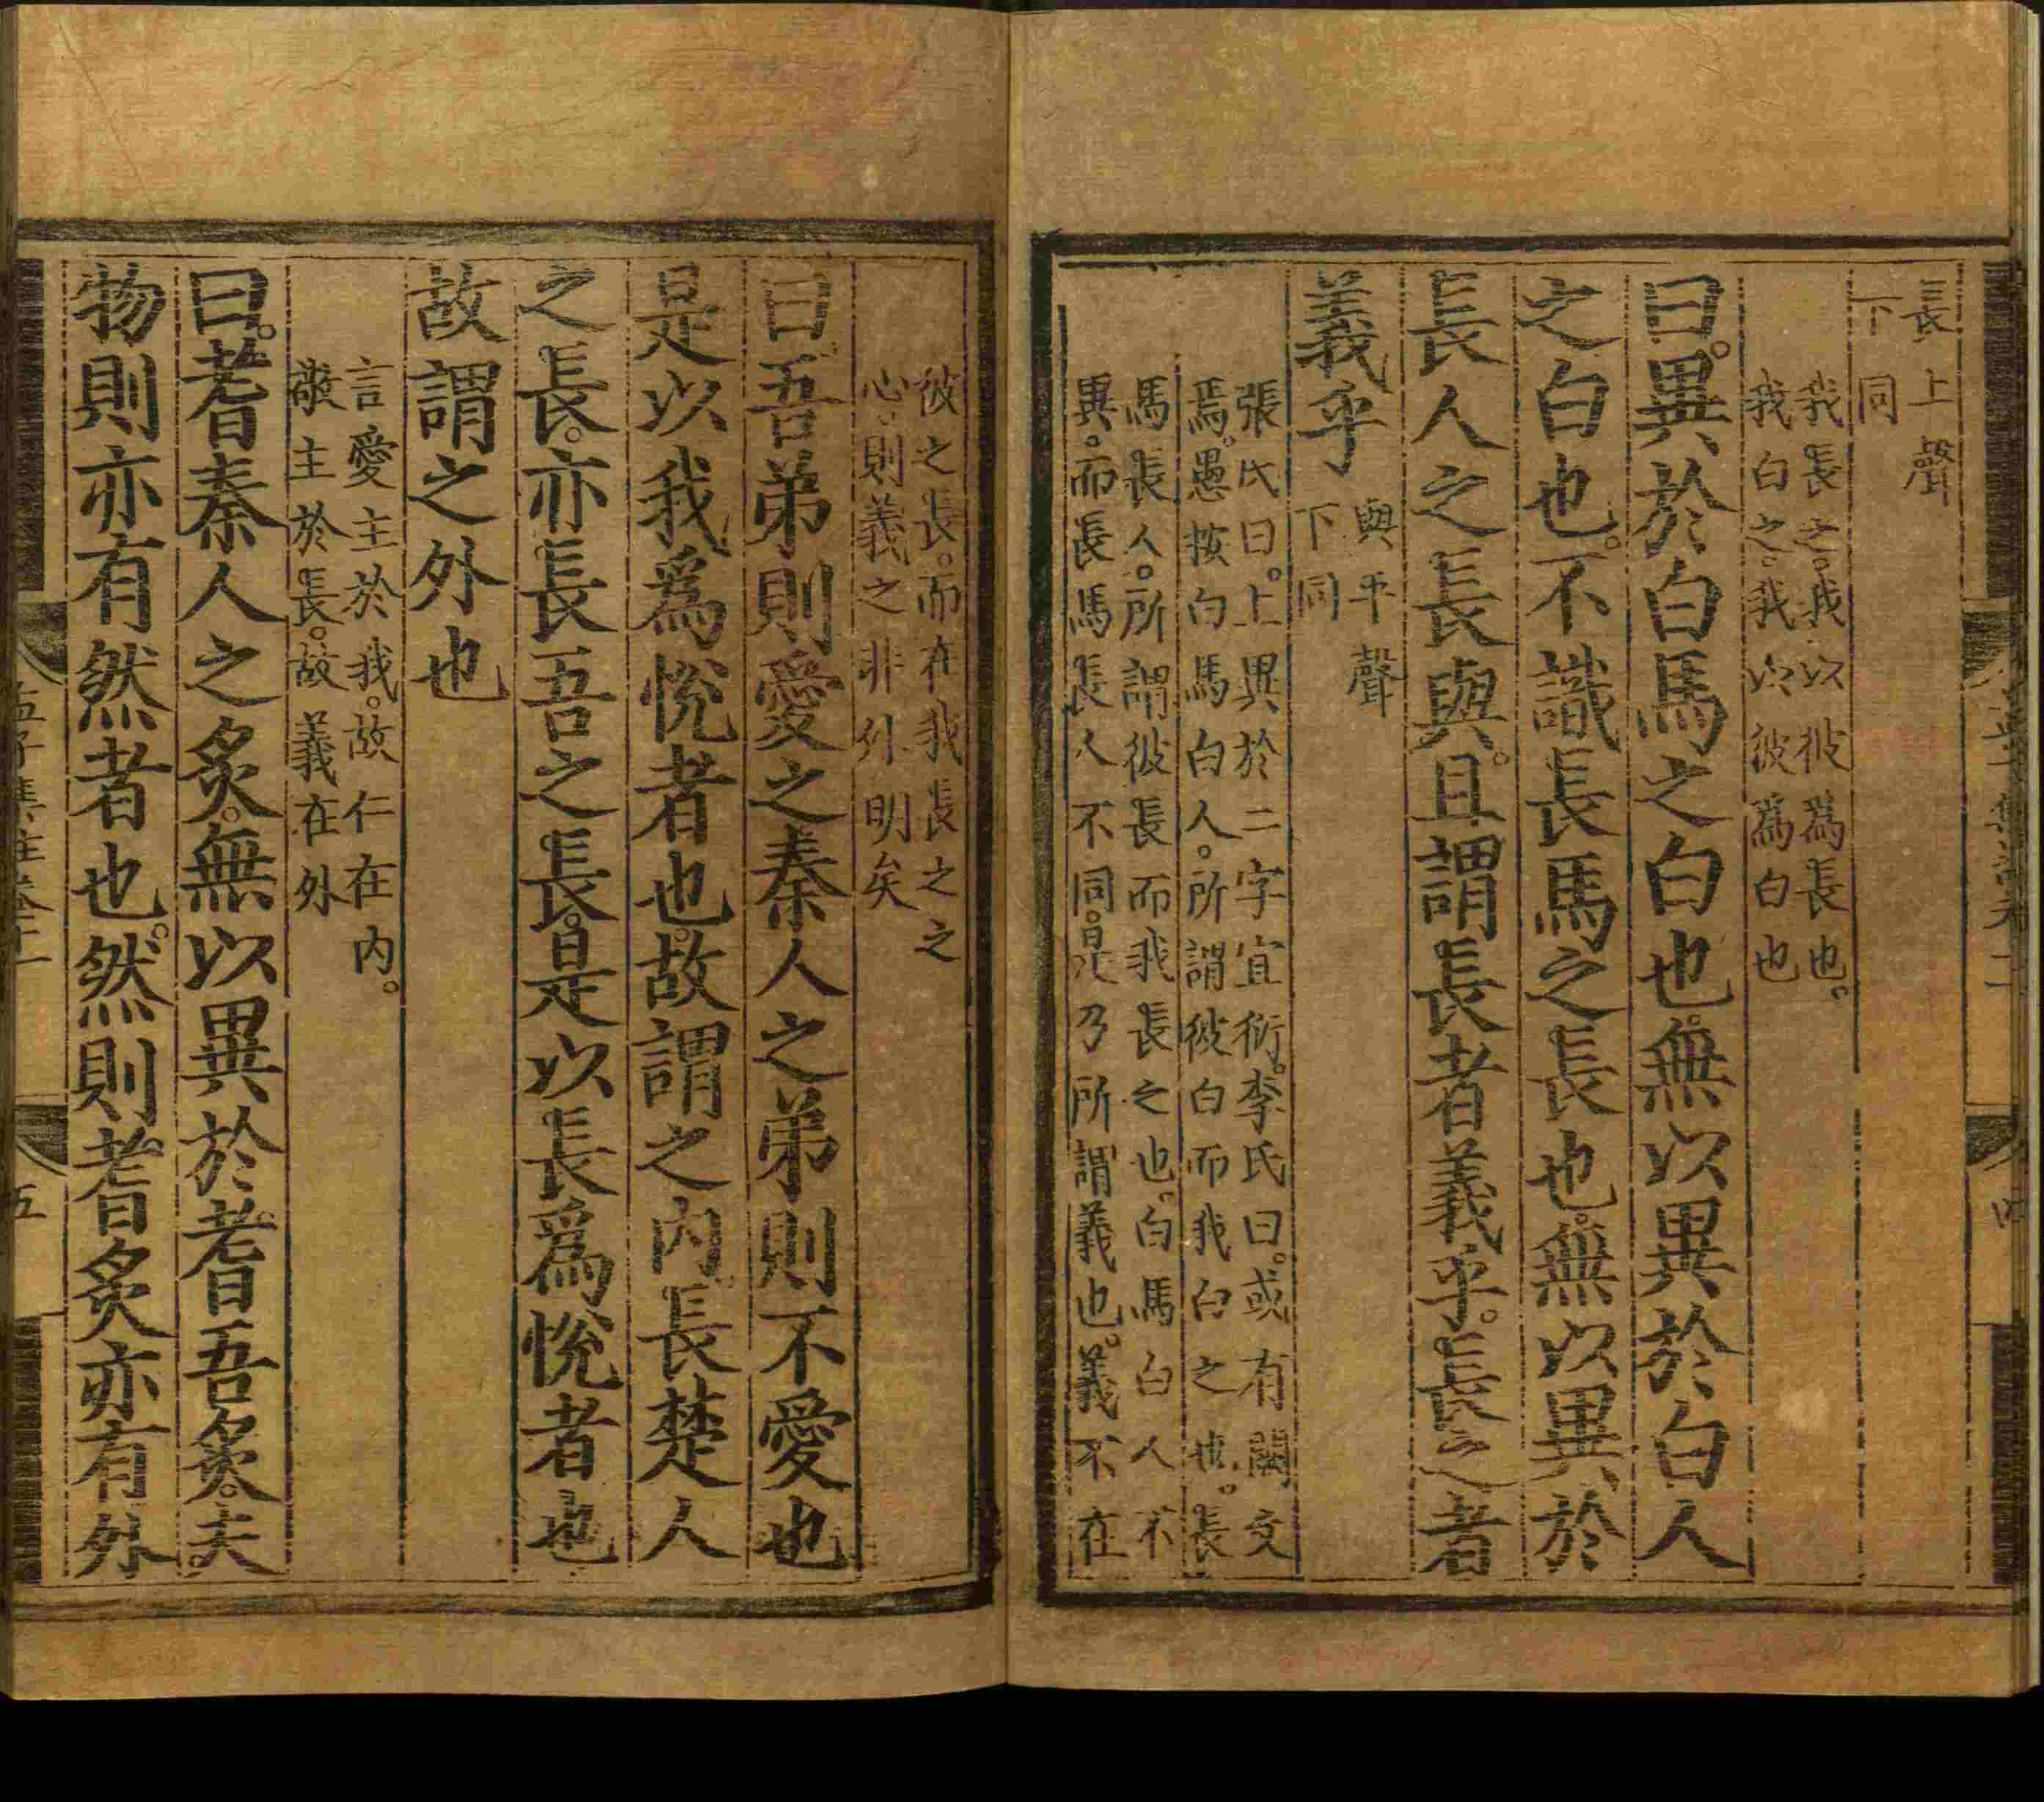 長上聲
下同
我長之。我以彼爲長也。
我白之。我以彼爲白也
曰。異於白馬之白也。無以異於白人
之白也。不識長馬之長也。無以異於
長人之長與。且謂長者義乎。長之者
義乎
與平聲
下同
張氏曰。上異於二字宜衍。李氏曰。或有闕文
焉。愚按白馬白人。所謂彼白而我白之也。長
馬長人。所謂彼長而我長之也。白馬白人不
異。而長馬長人不同。是乃所謂義也。義不在
彼之長。而在我長之之
心。則義之非外明矣
曰吾弟則愛之秦人之弟則不愛也
是以我爲悅者也。故謂之內長楚人
之長。亦長吾之長。是以長爲悅者也
故謂之外也
言愛主於我。故仁在內。
敬主於長。故義在外
曰。耆秦人之炙。無以異於耆吾炙。夫
物則亦有然者也。然則耆炙亦有外
五